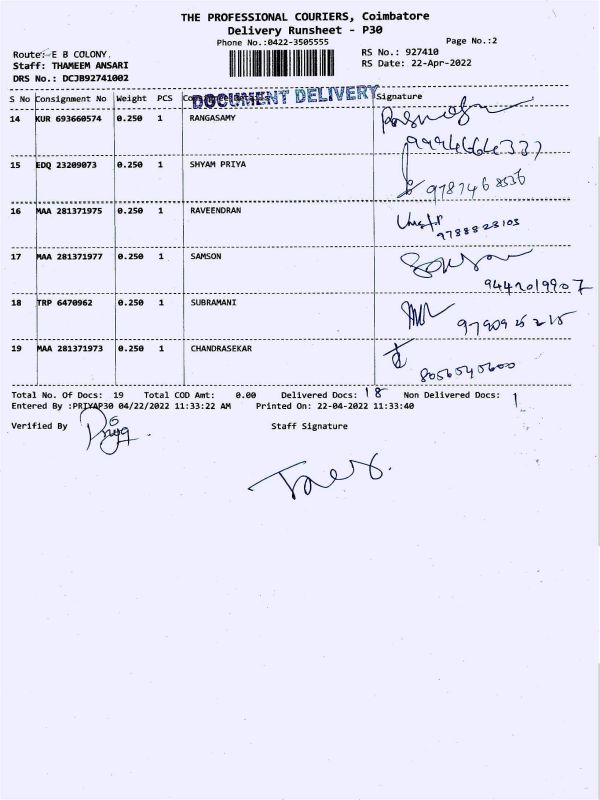 THE PROFESSIONAL COURIERS, Coimbatore
Delivery Runsheet - P30
Phone No.:0422-3505555
Page No.:2
Route:-E B COLONY,
RS No.: 927410
Staff: THAMEEM ANSARI
RS Date: 22-Apr-2022
DRS No.: DCJB92741002
S No Consignment No Weight PCS Signature
DOCUMENT DELIVERY
14 KUR 693660574 0.250 1 RANGASAMY
15 EDQ 23209073 0.250 1 SHYAM PRIYA
16 MAA 281371975 0.250 1 RAVEENDRAN
9788823103
17 MAA 281371977 0.250 1 SAMSON
9442019907
18 TRP 6470962 0.250 1 SUBRAMANI
19 MAA 281371973 0.250 1 CHANDRASEKAR
Total No. Of Docs: 19 Total COD Amt: 0.00 Delivered Docs: 18 Non Delivered Docs: 1
Entered By :PRIYAP30 04/22/2022 11:33:22 AM Printed On: 22-04-2022 11:33:40
Verified By Staff Signature
Priya